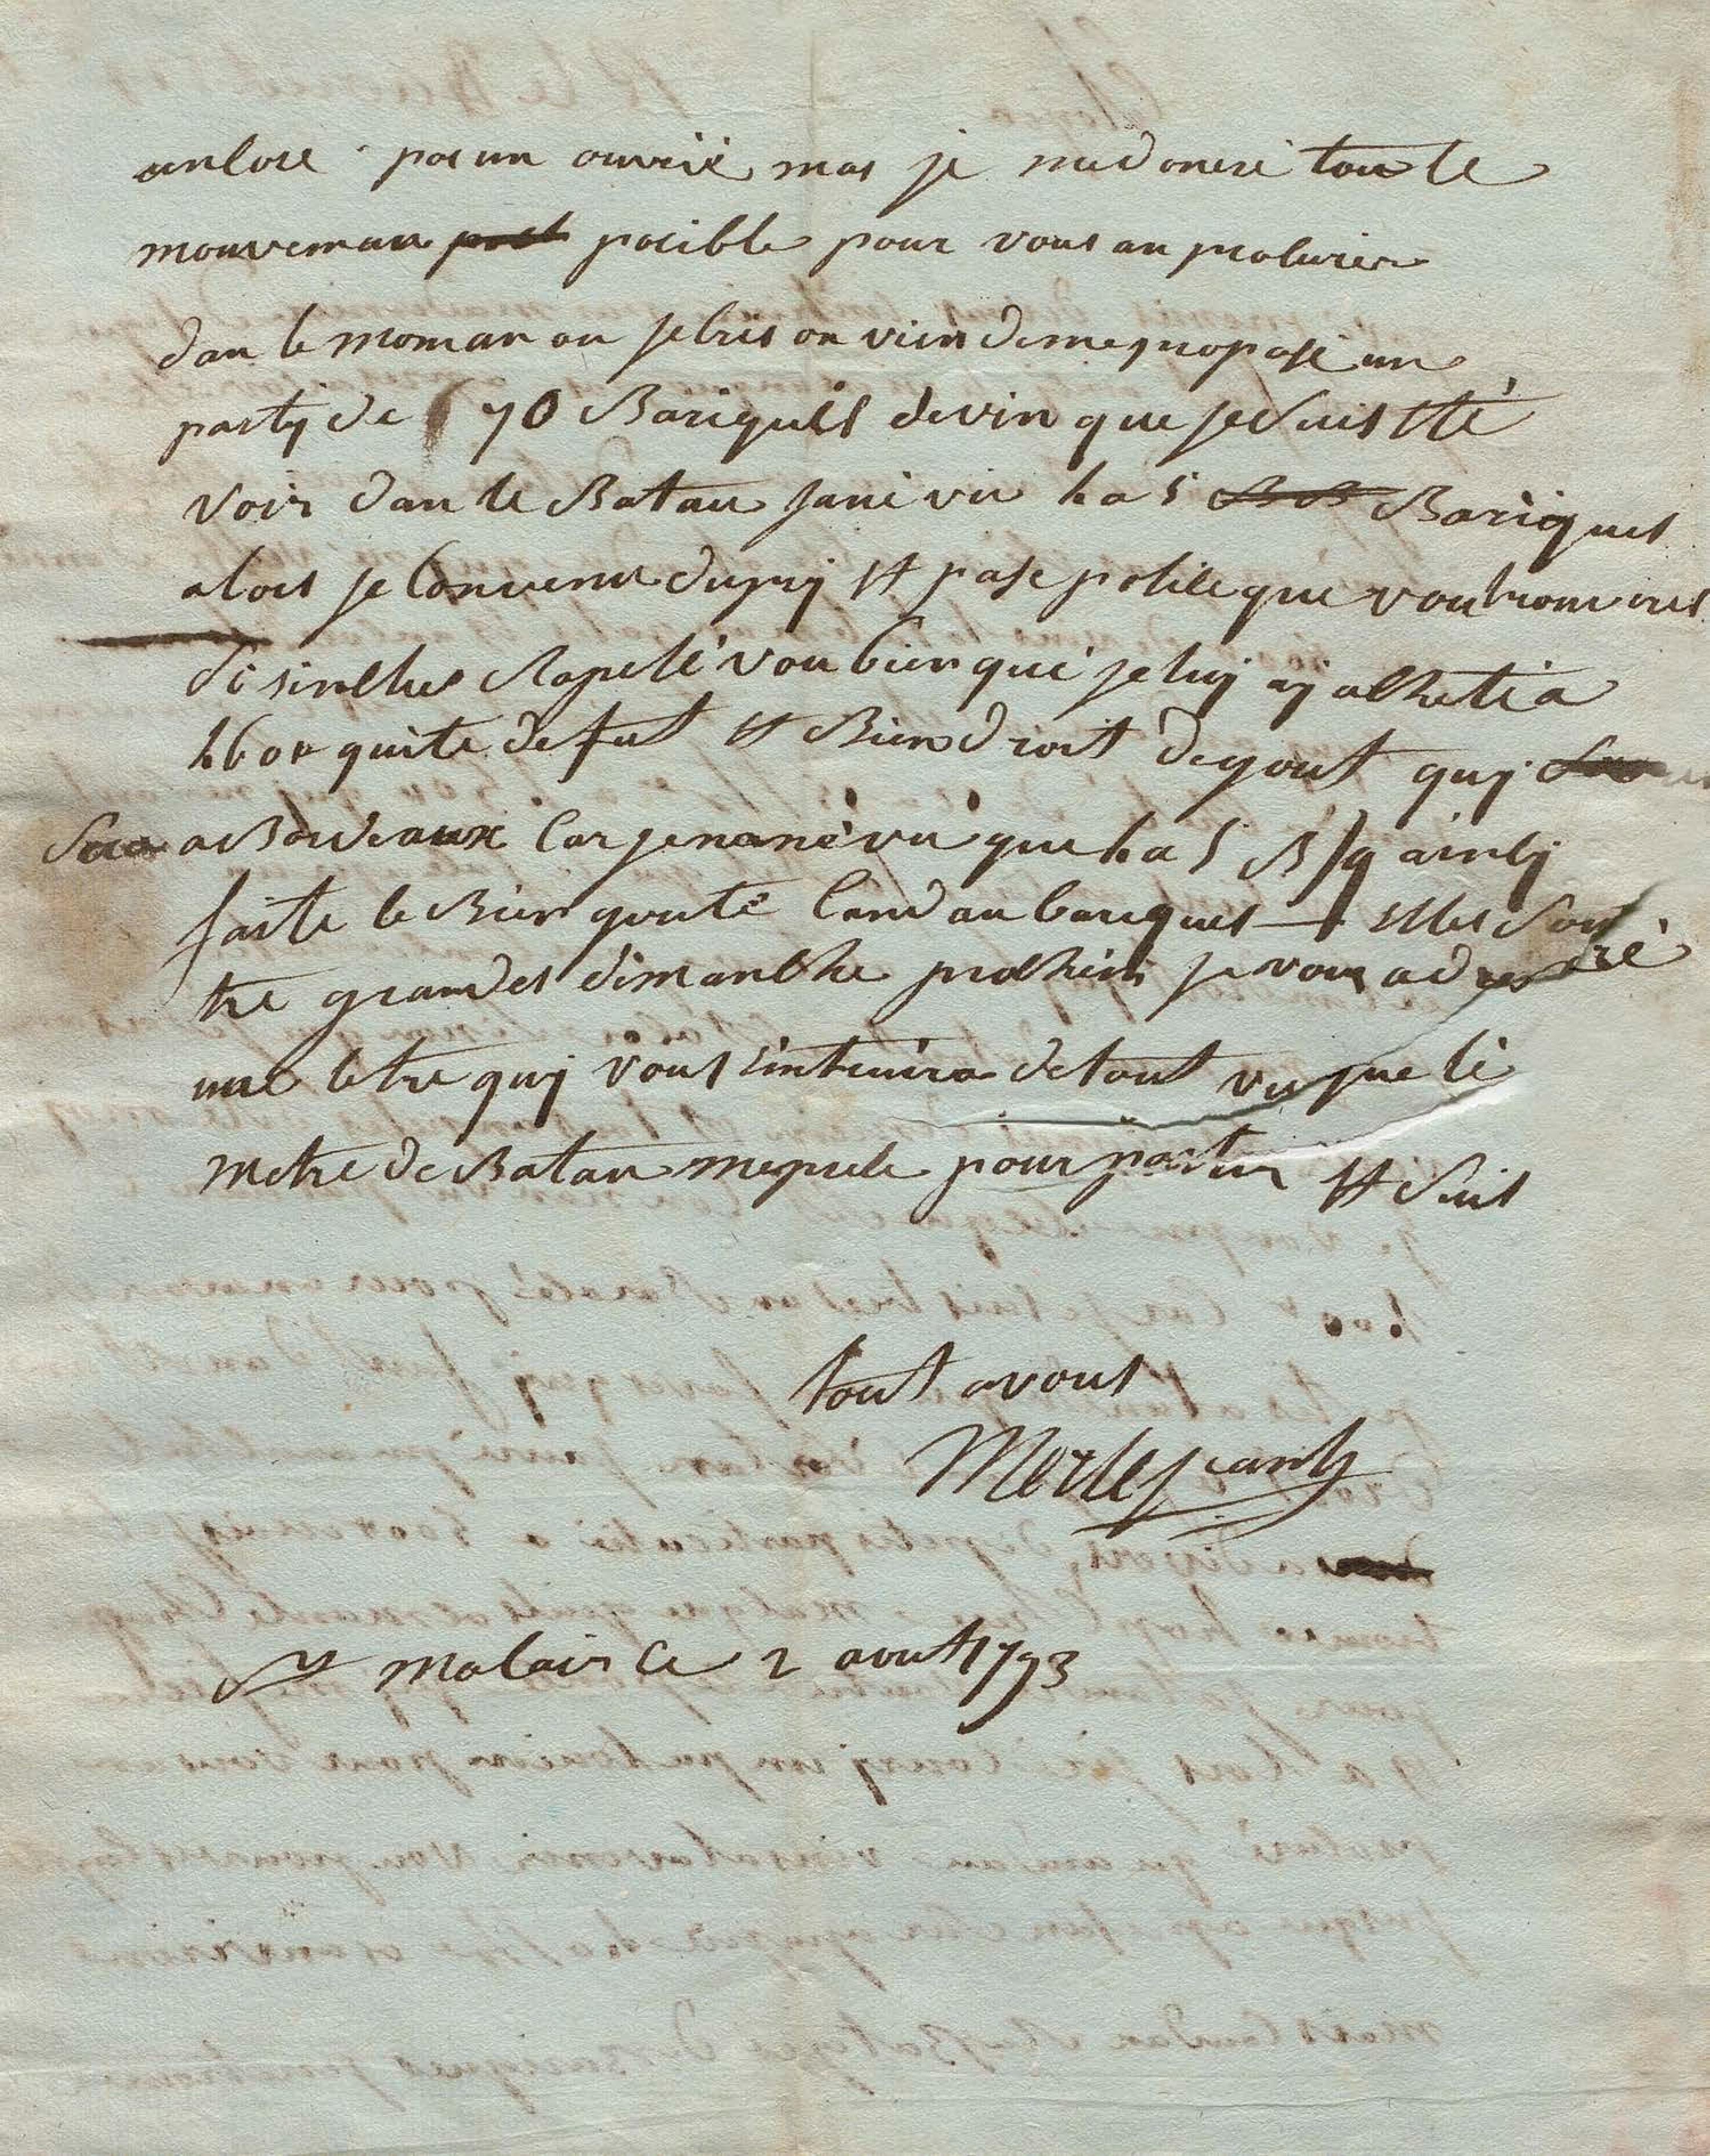 ancore pas un ouvrié mas je me doneré toute
mouveman posible pour vous an procurer
dan le moman ou je cris on vien de me proposé un
party de 70 Bariques de vin que je suis tté
voir dan le Batau jan é vu 4 a 5 Bariques
alors je convenu du prij et pase polise que vou trouverés
si sincluse Rapelé vou bien que je luj aj acheté a
460# quite de fut et Bien droit de gout quj
sera a Bordeaux car je nan é vu que 4 a 5 B/q ainsy
faite le Bien gouté cand au bariques elles sont
tre grandes dimanche prochein je vous adresseré
une letre quj vous sintruira de tout vu que le
metre de Batau me presse pour partir et suis
tout a vous
Merle
St Macair Ce 2 aout 1793